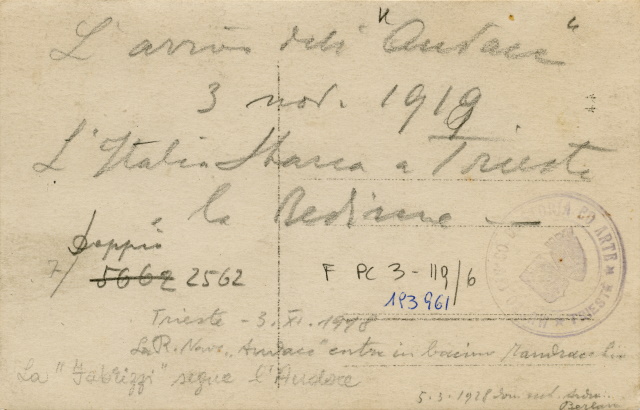 L'arrivo dell' "Audace"
3 nov. 1919
L'Italia sbarca a Trieste
la Redime —
doppio
7/ 5662 2562
F PC 3-119/6
193961
Trieste - 3. XI. 1918
La R. Nave "Audace" entra in bacino Mandracchio
La "Fabrizi" segue l'Audace
5.3.1928 don.
Berlam
STORIA ED ARTE
TRIESTE